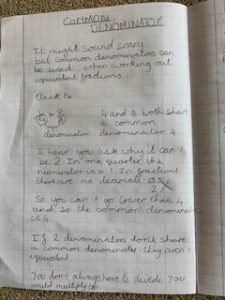 COMMON
DENOMINATOR
It might sound scary
but common denominators can
be used when working out
equivalent fractions.
Back to
1/4 = 2/8 4 and 8 both share
a common
denominator denominator 4.
I hear you ask why it can't
be 2. In one quarter the
numerator is a 1. In fractions
there are no decimals.
So you can't go lower than 4
and so the common denominator
is 4.
If 2 denominators don't share
a common denominator they aren't
equivalent.
You don't always have to divide. You
could multiply